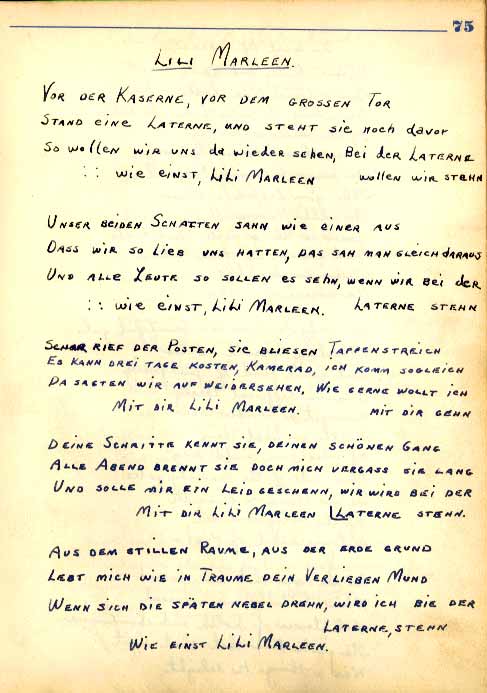 75
LILI MARLEEN.
VOR DER KASERNE, VOR DEM GROSSEN TOR
STAND EINE LATERNE, UND STEHT SIE NOCH DAVOR
SO WOLLEN WIR UNS DA WIEDER SEHEN, BEI DER LATERNE
:: WIE EINST, LILI MARLEEN WOLLEN WIR STEHN
UNSER BEIDEN SCHATTEN SAHN WIE EINER AUS
DASS WIR SO LIEB UNS HATTEN, DAS SAH MAN GLEICH DARAUS
UND ALLE LEUTE SO SOLLEN ES SEHN, WENN WIR BEI DER
:: WIE EINST, LILI MARLEEN. LATERNE STEHN
SCHON RIEF DER POSTEN, SIE BLIESEN TAPPENSTREICH
ES KANN DREI TAGE KOSTEN, KAMERAD, ICH KOMM SOGLEICH
DA SAGTEN WIR AUF WEIDERSEHEN, WIE GERNE WOLLT ICH
MIT DIR LILI MARLEEN. MIT DIR GEHN
DEINE SCHRITTE KENNT SIE, DEINEN SCHÖNEN GANG
ALLE ABEND BRENNT SIE DOCH MICH VERGASS SIE LANG
UND SOLLE MIR EIN LEID GESCHENN, WIR WIRD BEI DER
MIT DIR LILI MARLEEN LATERNE STEHN.
AUS DEM STILLEN RAUME, AUS DER ERDE GRUND
LEBT MICH WIE IN TRAUME DEIN VERLIEBEN MUND
WENN SICH DIE SPÄTEN NEBEL DREHN, WIRD ICH BIE DER
LATERNE, STEHN
WIE EINST LILI MARLEEN.